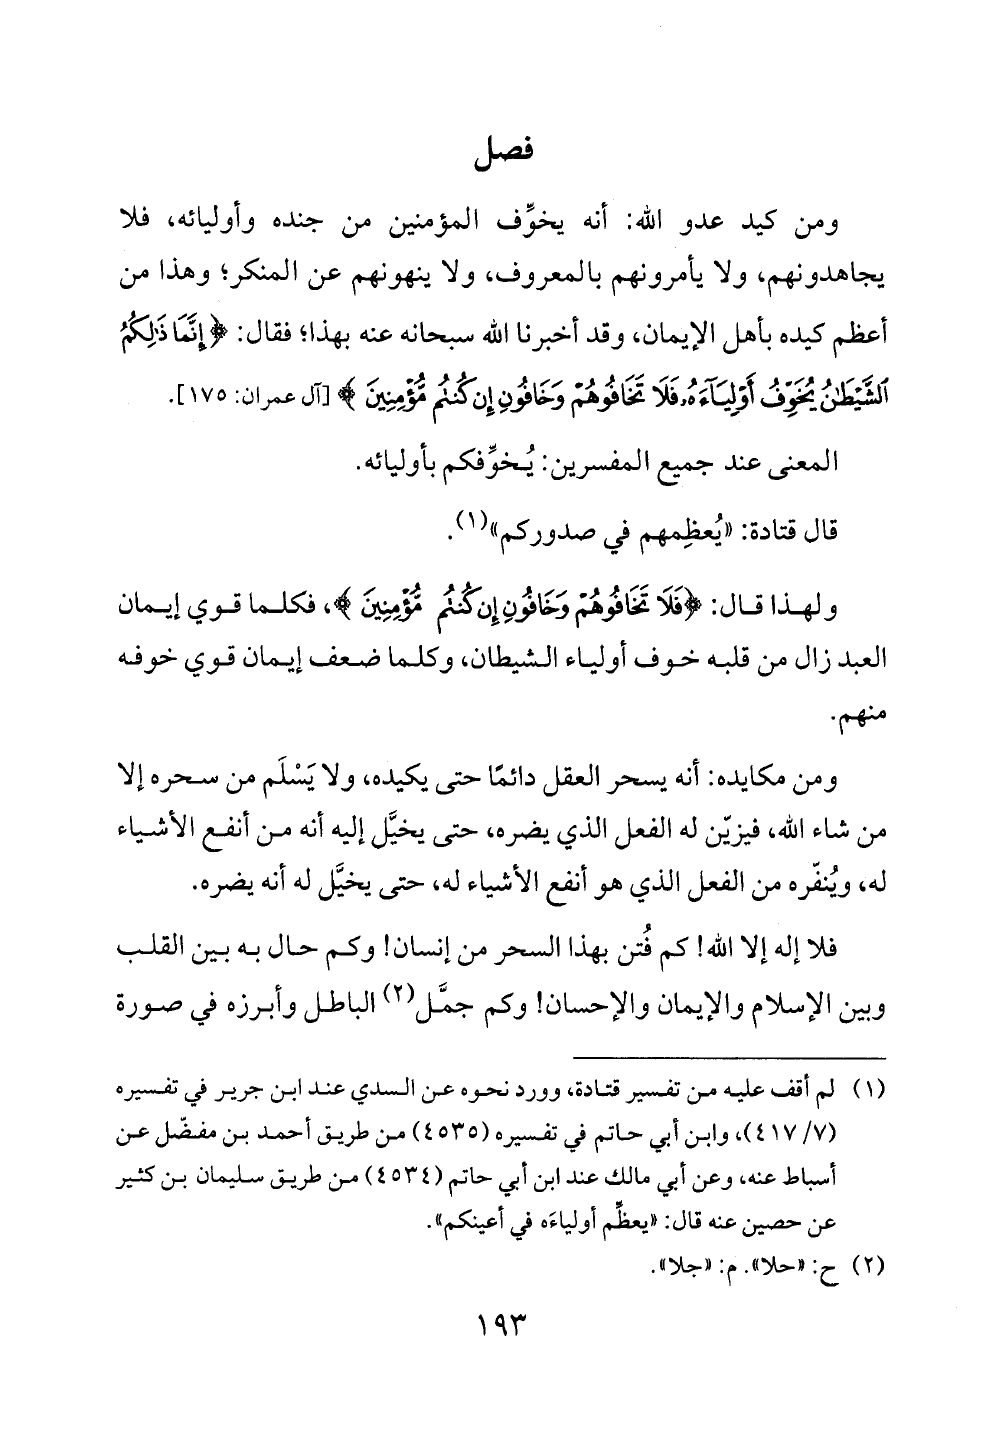 فصل
ومن كيد عدو الله: أنه يخوِّف المؤمنين من جنده وأوليائه، فلا
يجاهدونهم، ولا يأمرونهم بالمعروف، ولا ينهونهم عن المنكر؛ وهذا من
أعظم كيده بأهل الإيمان، وقد أخبرنا الله سبحانه عنه بهذا؛ فقال: ﴿إِنَّمَا ذَٰلِكُمُ
ٱلشَّيْطَٰنُ يُخَوِّفُ أَوْلِيَآءَهُۥ فَلَا تَخَافُوهُمْ وَخَافُونِ إِن كُنتُم مُّؤْمِنِينَ﴾ [آل عمران: ١٧٥].
المعنى عند جميع المفسرين: يُخوِّفكم بأوليائه.
قال قتادة: «يُعظِمهم في صدوركم»(١).
ولهذا قال: ﴿فَلَا تَخَافُوهُمْ وَخَافُونِ إِن كُنتُم مُّؤْمِنِينَ﴾، فكلما قوي إيمان
العبد زال من قلبه خوف أولياء الشيطان، وكلما ضعف إيمان قوي خوفه
منهم.
ومن مكايده: أنه يسحر العقل دائمًا حتى يكيده، ولا يَسْلَم من سحره إلا
من شاء الله، فيزيّن له الفعل الذي يضره، حتى يخيَّل إليه أنه من أنفع الأشياء
له، ويُنفّره من الفعل الذي هو أنفع الأشياء له، حتى يخيَّل له أنه يضره.
فلا إله إلا الله! كم فُتن بهذا السحر من إنسان! وكم حال به بين القلب
وبين الإسلام والإيمان والإحسان! وكم جمَّل(٢) الباطل وأبرزه في صورة
(١) لم أقف عليه من تفسير قتادة، وورد نحوه عن السدي عند ابن جرير في تفسيره
(٧/ ٤١٧)، وابن أبي حاتم في تفسيره (٤٥٣٥) من طريق أحمد بن مفضّل عن
أسباط عنه، وعن أبي مالك عند ابن أبي حاتم (٤٥٣٤) من طريق سليمان بن كثير
عن حصين عنه قال: «يعظِّم أولياءَه في أعينكم».
(٢) ح: «حلا». م: «جلا».
١٩٣